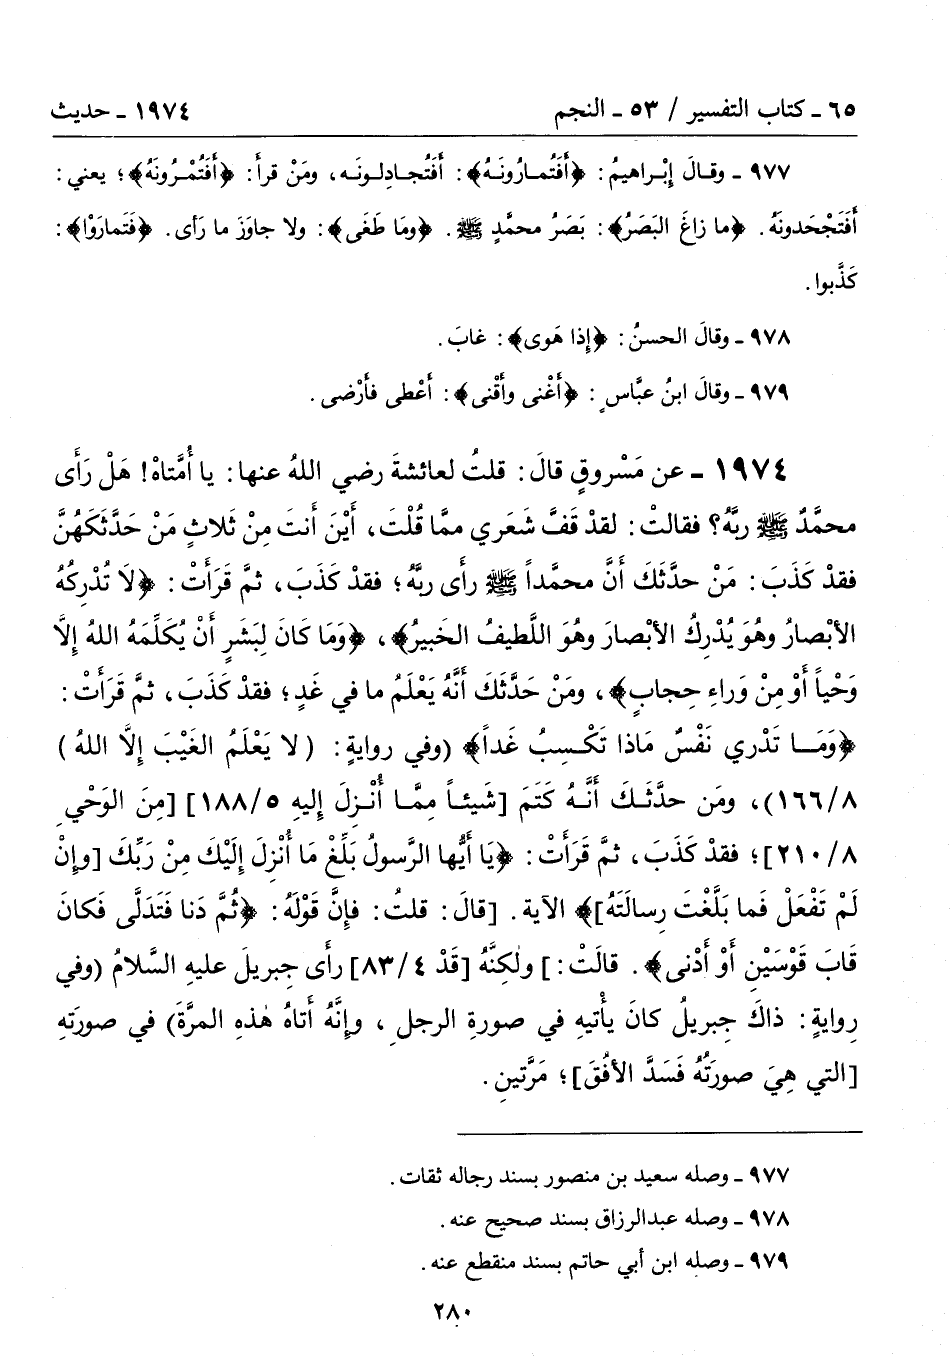 ٦٥ ـ كتاب التفسير / ٥٣ ـ النجم ١٩٧٤ ـ حديث
٩٧٧ ـ وقـالَ إِبْـراهيمُ: ﴿أَفَتُمـارُونَـهُ﴾: أَفتُجـادِلـونَـه، ومَنْ قرأَ: ﴿أَفَتُمْـرُونَهُ﴾؛ يعني:
أَفَتَجْحَدونَهُ. ﴿ما زاغَ البَصَرُ﴾: بَصَرُ محمَّدٍ ﷺ. ﴿وما طَغَى﴾: ولا جاوَزَ ما رَأى. ﴿فَتَمارَوْا﴾:
كَذَّبوا.
٩٧٨ ـ وقالَ الحسنُ: ﴿إِذا هَوى﴾: غابَ.
٩٧٩ ـ وقالَ ابنُ عبَّاسٍ: ﴿أَغْنى وأَقْنى﴾: أَعْطى فأَرْضى.
١٩٧٤ ـ عن مَسْروقٍ قالَ: قلتُ لعائشةَ رضي اللهُ عنها: يا أُمَّتاهْ! هَلْ رَأَى
محمَّدٌ ﷺ ربَّهُ؟ فقالتْ: لقدْ قَفَّ شَعَري ممَّا قُلْتَ، أَيْنَ أَنتَ مِنْ ثَلاثٍ مَنْ حَدَّثَكَهُنَّ
فقدْ كَذَبَ: مَنْ حدَّثَكَ أَنَّ محمداً ﷺ رأى ربَّهُ؛ فقدْ كَذَبَ، ثمَّ قَرَأَتْ: ﴿لَا تُدْرِكُهُ
الأبْصارُ وهُوَ يُدْرِكُ الأبْصارَ وهُوَ اللَّطيفُ الخَبيرُ﴾، ﴿وَمَا كَانَ لِبَشَرٍ أَنْ يُكَلِّمَهُ اللهُ إِلَّا
وَحْياً أَوْ مِنْ وَراءِ حِجابٍ﴾، ومَنْ حَدَّثَكَ أَنَّهُ يَعْلَمُ ما في غَدٍ؛ فقدْ كَذَبَ، ثمَّ قَرَأَتْ:
﴿وَمَــا تَدْري نَفْسٌ مَاذا تَكْـسِبُ غَداً﴾ (وفي روايةٍ: (لا يَعْلَمُ الغَيْبَ إِلَّا اللهُ)
٨/١٦٦)، ومَن حدَّثَـكَ أَنَّـهُ كَتَمَ [شَيئـاً مِمَّـا أُنْـزِلَ إِليهِ ٥/١٨٨] [مِنَ الوَحْيِ
٨/٢١٠]؛ فقدْ كَذَبَ، ثمَّ قَرَأَتْ: ﴿يَا أَيُّها الرَّسولُ بَلِّغْ مَا أُنْزِلَ إِلَيْكَ مِنْ رَبِّكَ [وإِنْ
لَمْ تَفْعَلْ فَما بَلَّغْتَ رِسالَتَهُ]﴾ الآية. [قالَ: قلتُ: فإِنَّ قَوْلَهُ: ﴿ثُمَّ دَنا فَتَدَلَّى فَكانَ
قابَ قَوْسَيْنِ أَوْ أَدْنى﴾. قالَتْ:] ولٰكِنَّهُ [قَدْ ٤/٨٣] رأى جِبريلَ عليهِ السَّلامُ (وفي
رِوايةٍ: ذاكَ جِبريلُ كانَ يأْتيهِ في صورةِ الرجلِ، وإِنَّهُ أَتاهُ هٰذهِ المرَّةَ) في صورَتِهِ
[التي هِيَ صورَتُهُ فَسَدَّ الأفُقَ]؛ مَرَّتينِ.
٩٧٧ ـ وصله سعيد بن منصور بسند رجاله ثقات.
٩٧٨ ـ وصله عبدالرزاق بسند صحيح عنه.
٩٧٩ ـ وصله ابن أبي حاتم بسند منقطع عنه.
٢٨٠